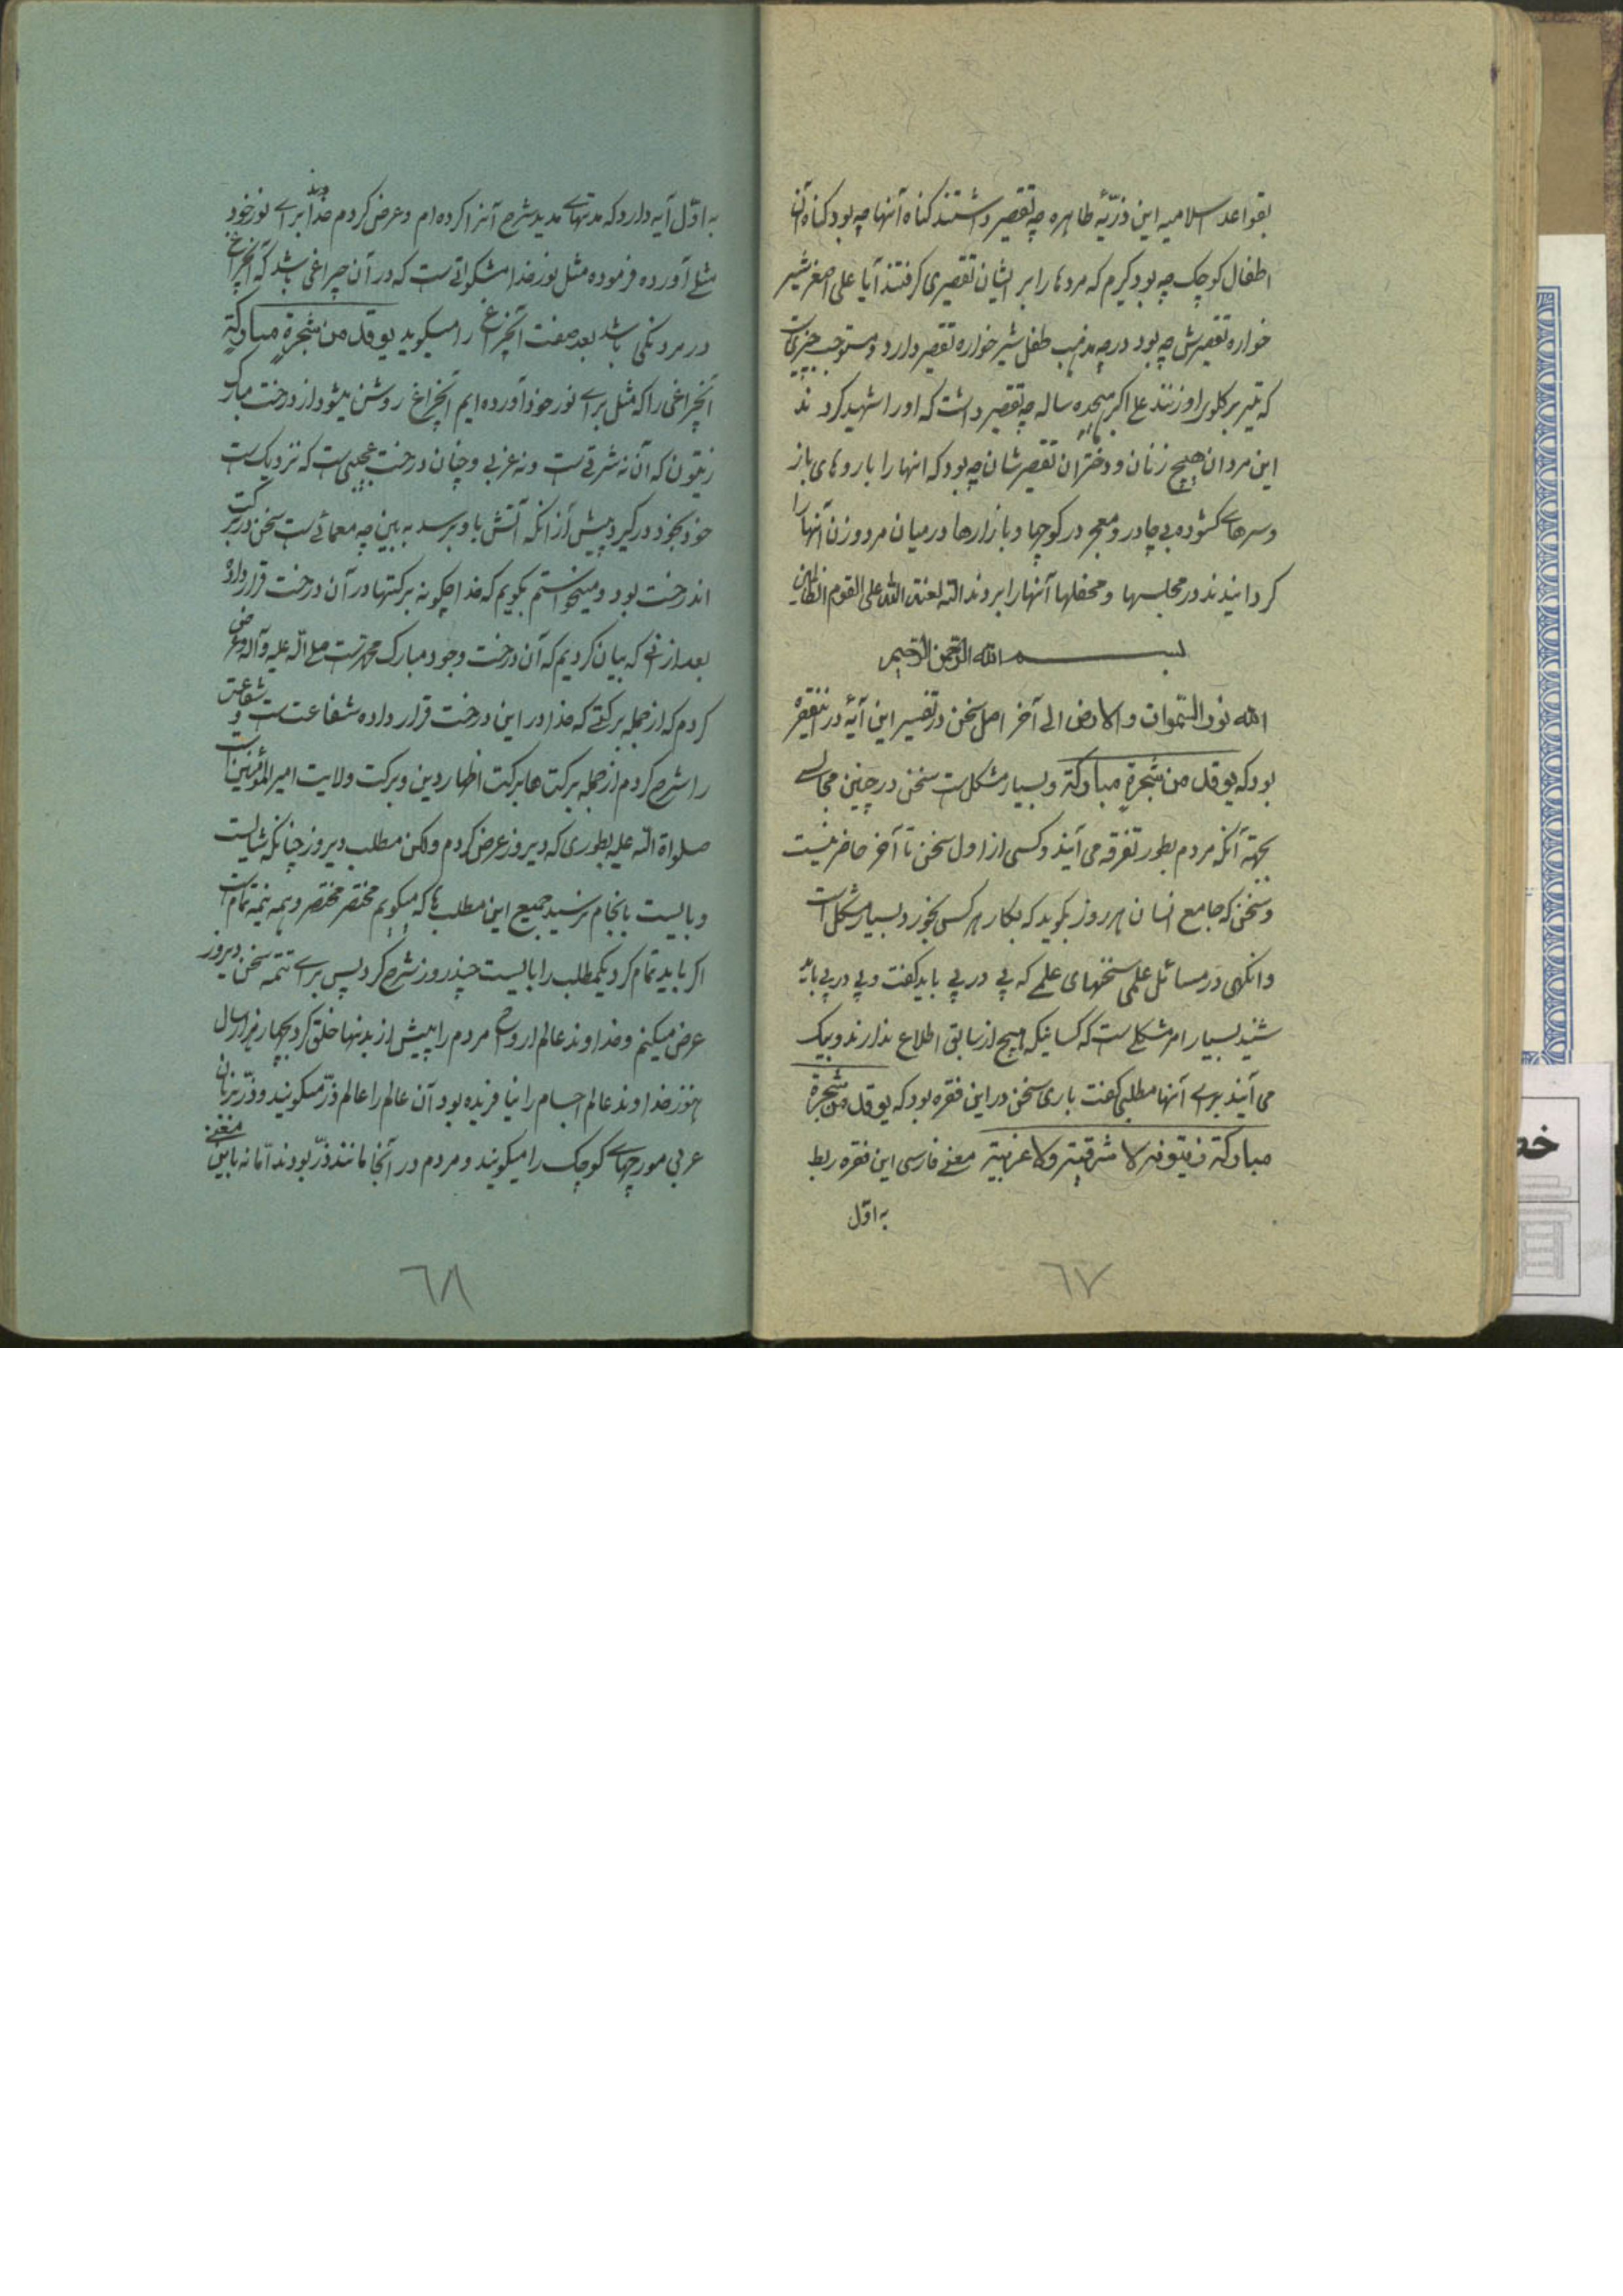 بقواعد اسلامیه این ذرّیّهٔ طاهره چه تقصیر داشتند کناه آنها چه بود کناه آن
اطفال کوچک چه بود کیرم که مردها را بر ایشان تقصیری کرفتند آیا علی اصغر شیر
خواره تقصیرش چه بود در چه مذهب طفل شیر خواره تقصیر دارد و مستوجب چیزیست
که تیر بر کلوی او زنند علی اکبر هیجده ساله چه تقصیر داشت که او را شهید کردند
این مردان هیچ زنان و دختران تقصیرشان چه بود که انها را با روهای باز
و سرهای کشوده بی چادر و معجر در کوچها و بازارها در میان مرد و زن آنها را
کردانیدند در مجلسها و محفلها آنها را بردند الا لعنة الله علی القوم الظالمین
بسم الله الرحمن الرحیم
الله نور السّموات والارض الی آخر اصل سخن در تفسیر این آیهٔ در اینفقره
بود که یوقد من شجرةٍ مبارکة و بسیار مشکلست سخن در چنین مجالسی
بجهته آنکه مردم بطور تفرقه می آیند و کسی از اول سخن تا آخر حاضر نیست
و سخنی که جامع انسان هر روز بکوید که بکار هر کس بخورد بسیار مشکل است
وانکهی در مسائل علمی سخنهای علمی که پی در پی باید کفت و پی در پی باید
شنید بسیار امر مشکلی ست که کسانیکه هیچ از سابق اطلاع ندارند و بیک
می آیند برای آنها مطلبی کفت باری سخن در این فقره بود که یوقد من شجرة
مبارکة زیتونة لا شرقیة ولا غربیة معنی فارسی این فقره ربط
به اوّل
٦٧
به اوّل آیه دارد که مدتهای مدید شرح آنرا کرده ام و عرض کردم خداوند برای نور خود
مثلی آورده فرموده مثل نور خدا مشکواتی ست که در آن چراغی باشد که آنچراغ
در مردنکی باشد بعد صفت آنچراغ را میکوید یوقد من شجرةٍ مبارکةٍ
آنچراغی را که مثل برای نور خود آورده ایم آنچراغ روشن میشود از درخت مبارک
زیتون که آن نه شرقی ست و نه غربی و چنان درخت عجیبی ست که نزدیک ست
خود بخود در کیرد پیش از آنکه آتش باو برسد به بین چه معمائی ست سخن در برکت
اندرخت بود و میخواستم بکویم که خدا چکونه برکتها در آن درخت قرار داده
بعد از آنی که بیان کردیم که آن درخت وجود مبارک محمد ست صلی الله علیه و آله و عرض
کردم که از جمله برکتی که خدا در این درخت قرار داده شفاعت ست و شفاعت
را شرح کردم از جمله برکت ها برکت اظهار دین و برکت ولایت امیرالمؤمنین است
صلواة الله علیه بطوری که دیروز عرض کردم ولکن مطلب دیروز چنانکه شایست
و بایست بانجام نرسید جمیع این مطلب ها که میکویم مختصر مختصر و نیمه نیمه تمام است
اکر باید تمام کرد یکمطلب را بایست چند روز شرح کرد پس برای تتمه سخن دیروز
عرض میکنم و خداوند عالم ارواح مردم را پیش از بدنها خلق کرد بچهار هزار سال
هنوز خداوند عالم اجسام را نیافریده بود آن عالم را عالم ذرّ میکویند و ذرّ بزبان
عربی مورچهای کوچک را میکویند و مردم در آنجا مانند ذرّ بودند امّا نه باین معنی
٦٨